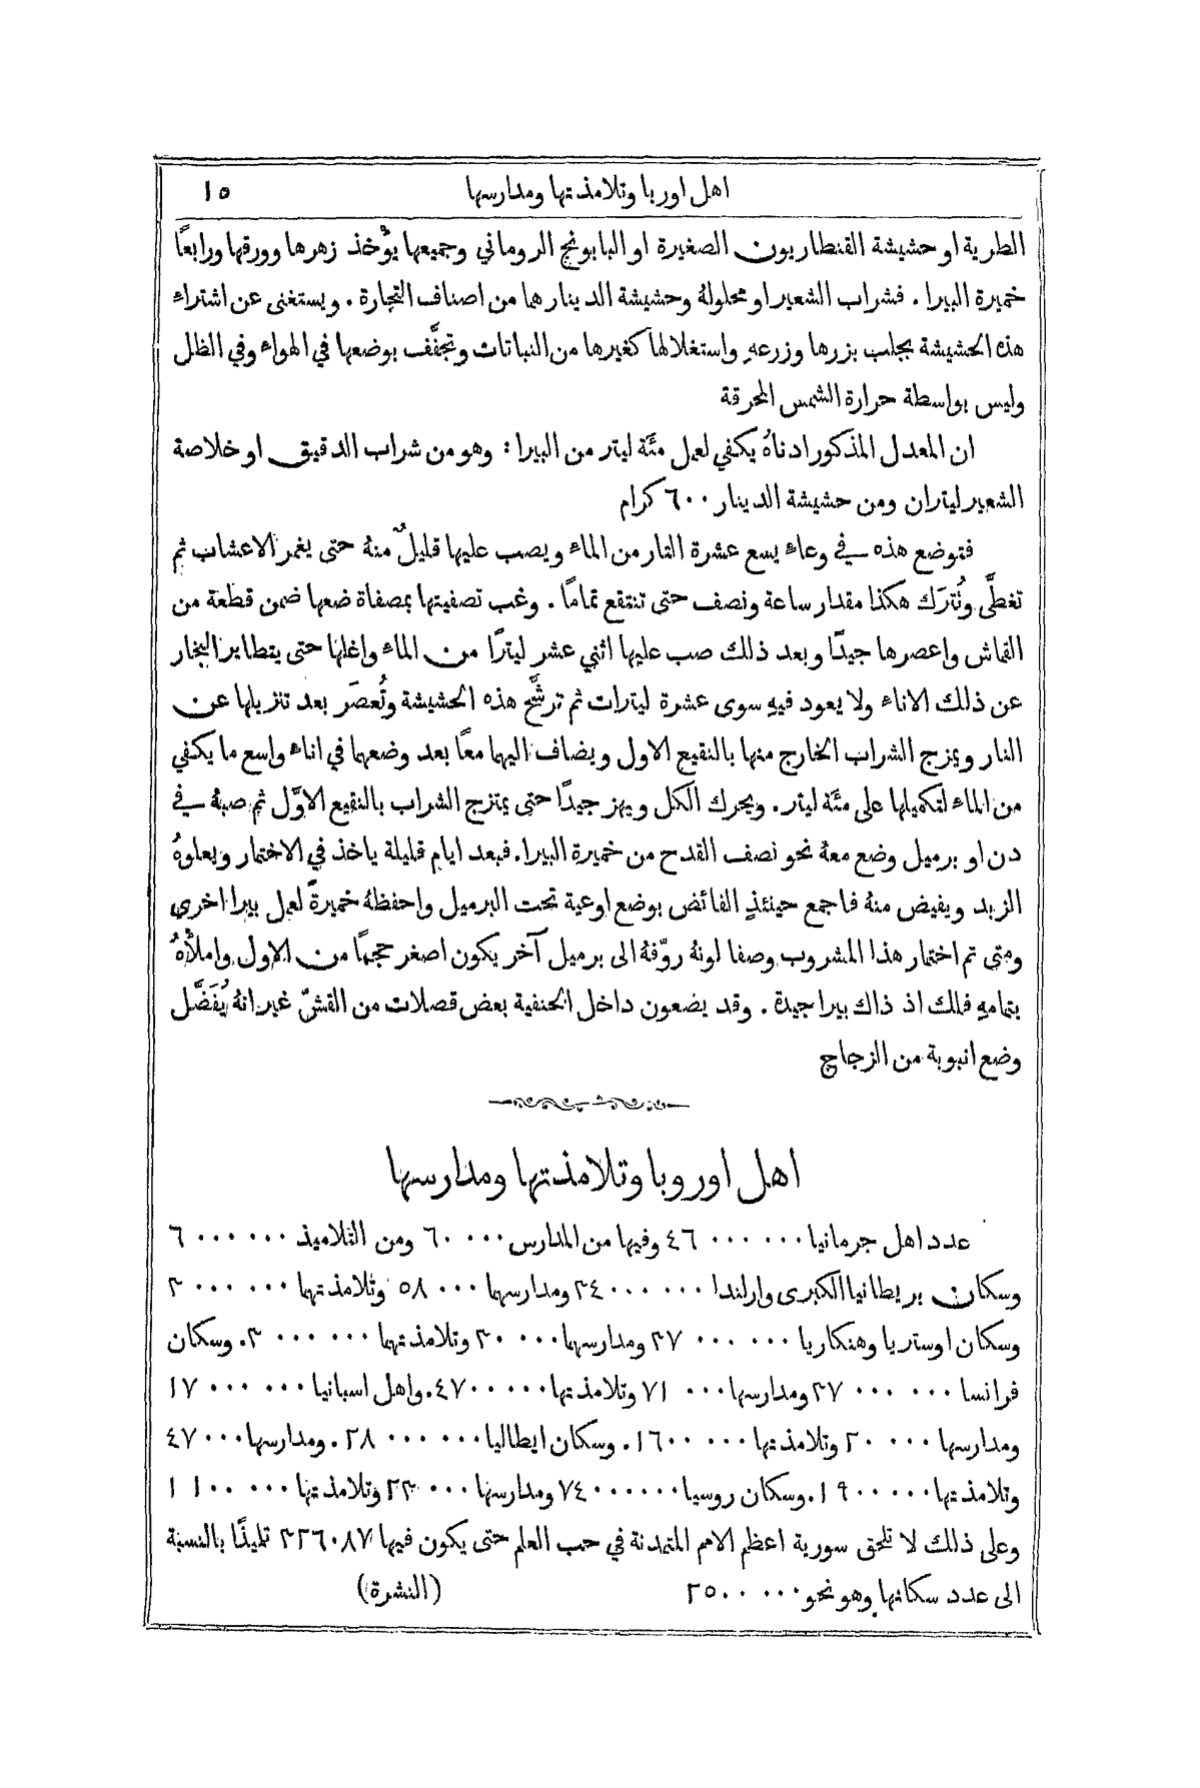 اهل اوربا وتلامذتها ومدارسها ١٥
الطرية او حشيشة القنطاريون الصغيرة او البابونج الروماني وجميعها يؤخذ زهرها وورقها ورابعًا
خميرة البيرا . فشراب الشعير او محلولهُ وحشيشة الدينار هما من اصناف التجارة . ويستغنى عن اشتراء
هذه الحشيشة بجلب بزرها وزرعهِ واستغلالها كغيرها من النباتات وتجفَّف بوضعها في الهواء وفي الظل
وليس بواسطة حرارة الشمس المحرقة
ان المعدل المذكور ادناهُ يكفي لعمل مئة ليتر من البيرا : وهو من شراب الدقيق او خلاصة
الشعير ليتران ومن حشيشة الدينار ٦٠٠ كرام
فتوضع هذه في وعاء يسع عشرة النار من الماء ويصب عليها قليلٌ منهُ حتى يغمر الاعشاب ثم
تغطَّى وتُترَك هكذا مقدار ساعة ونصف حتى تنتقع تمامًا . وغب تصفيتها بمصفاة ضعها ضمن قطعة من
القماش واعصرها جيدًا وبعد ذلك صب عليها اثني عشر ليترًا من الماء واغلها حتى يتطاير البخار
عن ذلك الاناء ولا يعود فيهِ سوى عشرة ليترات ثم ترشَّح هذه الحشيشة وتُعصَر بعد تنزيلها عن
النار ويمزج الشراب الخارج منها بالنقيع الاول ويضاف اليهما معًا بعد وضعهما في اناء واسع ما يكفي
من الماء لتكميلها على مئة ليتر . ويحرك الكل ويهز جيدًا حتى يمتزج الشراب بالنقيع الاوَّل ثم صبهُ في
دن او برميل وضع معهُ نحو نصف القدح من خميرة البيرا . فبعد ايام قليلة ياخذ في الاختمار ويعلوهُ
الزبد ويفيض منهُ فاجمع حينئذٍ الفائض بوضع اوعية تحت البرميل واحفظهُ خميرةً لعمل بيرا اخرى
ومتى تم اختمار هذا المشروب وصفا لونهُ روّقهُ الى برميل آخر يكون اصغر حجمًا من الاول واملأهُ
بتمامهِ فلك اذ ذاك بيرا جيدة . وقد يضعون داخل الحنفية بعض قصلات من القشّ غير انهُ يُفَضَّل
وضع انبوبة من الزجاج
اهل اوروبا وتلامذتها ومدارسها
عدد اهل جرمانيا ٤٦٠٠٠٠٠٠ وفيها من المدارس ٦٠٠٠٠ ومن التلاميذ ٦٠٠٠٠٠٠
وسكان بريطانيا الكبرى وارلندا ٣٤٠٠٠٠٠٠ ومدارسها ٥٨٠٠٠ وتلامذتها ٣٠٠٠٠٠٠
وسكان اوستريا وهنكاريا ٣٧٠٠٠٠٠٠ ومدارسها ٣٠٠٠٠ وتلامذتها ٣٠٠٠٠٠٠. وسكان
فرانسا ٣٧٠٠٠٠٠٠ ومدارسها ٧١٠٠٠ وتلامذتها ٤٧٠٠٠٠٠. واهل اسبانيا ١٧٠٠٠٠٠٠
ومدارسها ٢٠٠٠٠ وتلامذتها ١٦٠٠٠٠٠. وسكان ايطاليا ٢٨٠٠٠٠٠٠. ومدارسها ٤٧٠٠٠
وتلامذتها ١٩٠٠٠٠٠. وسكان روسيا ٧٤٠٠٠٠٠٠ ومدارسها ٣٣٠٠٠ وتلامذتها ١١٠٠٠٠٠
وعلى ذلك لا تلحق سورية اعظم الامم المتمدنة في حب العلم حتى يكون فيها ٣٢٦٠٨٧ تلميذًا بالنسبة
الى عدد سكانها وهو نحو ٢٥٠٠٠٠٠ (النشرة)